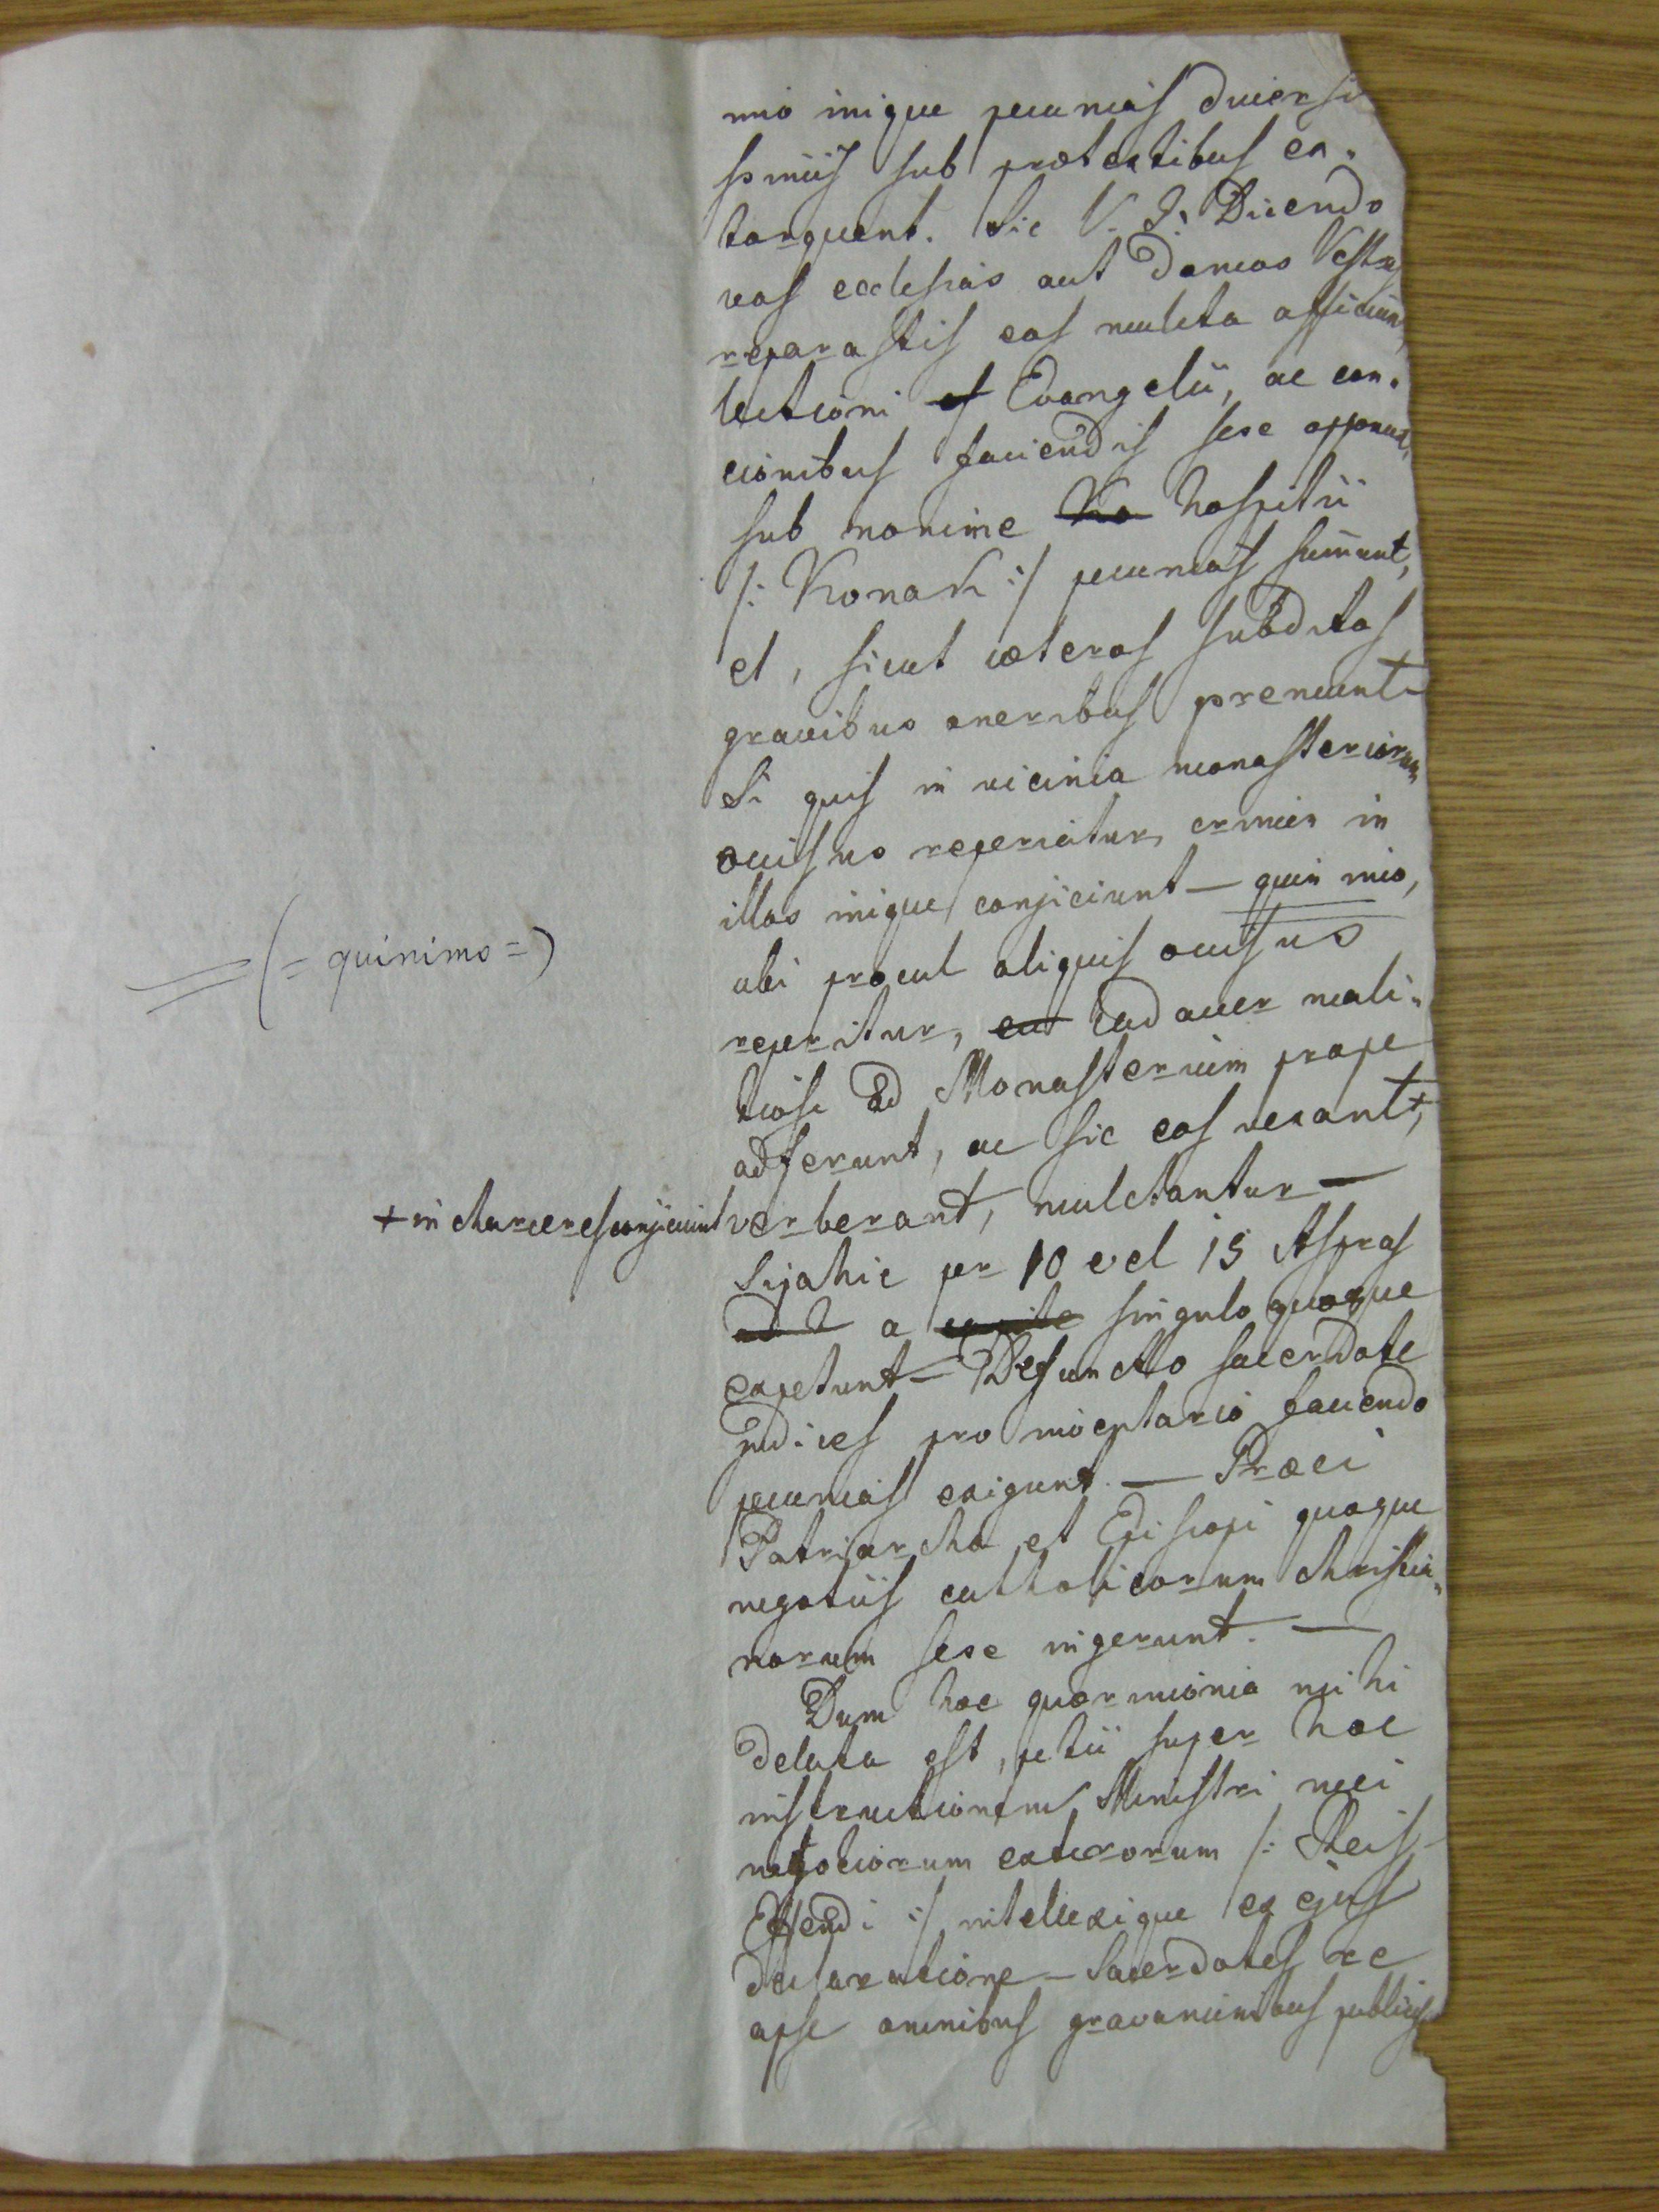 mio inique pecunias diversi
ssimis sub prætextibus ex-
torquent. Sic V. G: Dicendo
vos ecclesias aut Domos Vestras
reparastis eos mulcta afficiunt,
lectioni Evangelii, ac con-
cionibus faciendis sese opponunt,
sub nomine Ko hospitii
/: Konak :/ pecunias sumunt,
et, sicut cæteros subditos
gravibus oneribus premunt
Si quis in vicinia monasteriorum
occisus reperiatur, crimen in
illos inique conjiciunt — quin imo,
ubi procul aliquis occisus
(= quinimo =)
reperitur, cadaver mali-
tiose ad Monasterium prope
adferunt, ac sic eos vexant +,
+ in charceres conjiciunt verberant, mulctantur —
Sijahie per 10 vel 15 Aspras
a singulo quoque
expetunt — Defuncto sacerdote
Judices pro inveptario faciendo
pecunias exigunt. — Græci
Patriarcha et Episcopi quoque
negotiis catholicorum Christia-
norum sese ingerunt. —
Dum hæc quærimonia mihi
delata est, petii super hoc
instructionem Ministri mei
negotiorum exterorum /: Reis-
Effendi :/ intellexique ex ejus
declaratione — Sacerdotes re
apse omnibus gravaminibus publicis